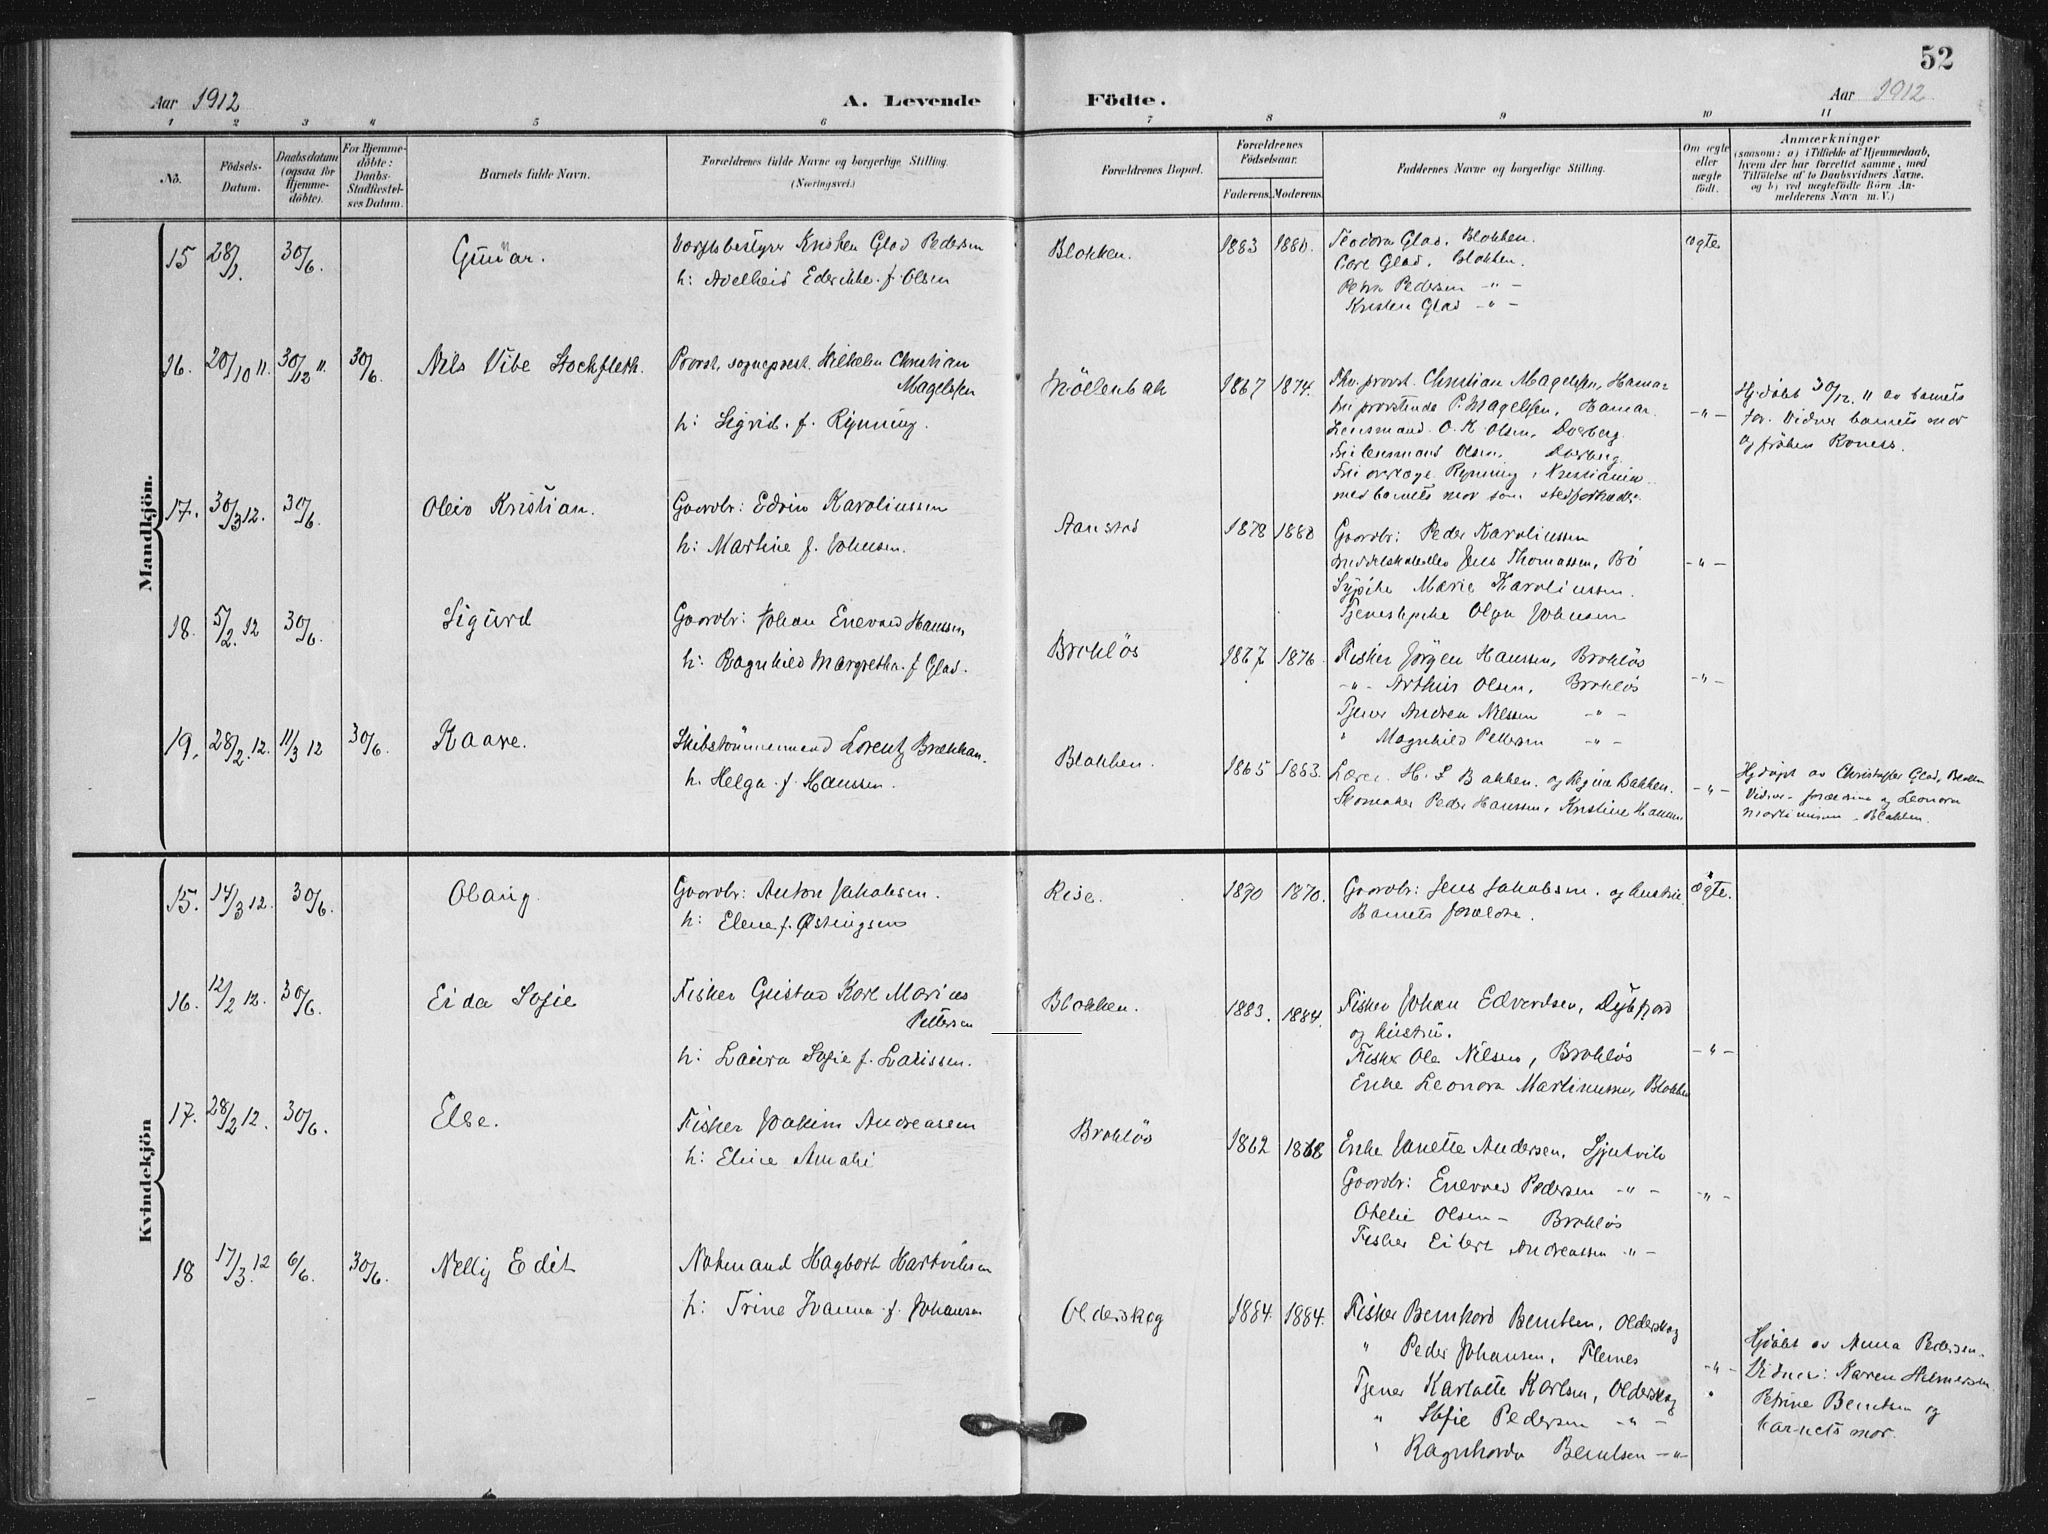 52
Aar 1912
A. Levende Födte.
Aar 1912.
1 2 3 4 5 6 7 8 9 10 11
No.
Födsels-
Datum.
Daabsdatum
(ogsaa for
Hjemme-
döbte).
For Hjemme-
döbte:
Daabs-
Stadfæstel-
ses Datum.
Barnets fulde Navn.
Forældrenes fulde Navne og borgerlige Stilling.
(Næringsvei.)
Forældrenes Bopæl.
Forældrenes
Födselsaar.
Faderens. Moderens.
Faddernes Navne og borgerlige Stilling.
Om ægte
eller
uægte
födt.
Anmærkninger
(saasom: a) i Tilfælde af Hjemmedaab,
hvem der har forrettet samme, med
Tilföielse af to Daabsvidners Navne,
og b) ved uægtefödte Börn An-
melderens Navn m. V.)
Mandkjön.
15 28/1. 30/6. Gunnar.
Kristen Glad Pedersen
h: Adelheid Ederikke f. Olsen
Blokken. 1883 1880.
Teodora Glad, Blokken.
Carl Glad, Blokken.
Petra Pedersen -"-
Kristen Glad -"-
ægte
16. 20/10 11. 30/12 11. 30/6. Nils Vibe Stockfleth.
Provst, sogneprest Wilhelm Christian
Magelssen
h: Sigrid f. Rynning.
Möllenbak 1867 1874.
Christian Magelssen, Hamar
P. Magelssen, Hamar.
Lensmand O. K. Olsen, Dverberg.
Olsen, Dverberg.
Rynning, Kristiania
med barnets mor som
-"-
Hjdöbt 30/12 11 av barnets
far. Vidner barnets mor
og fröken Roness.
17. 30/3 12. 30/6. Oleiv Kristian.
Gaardbr: Edvin Karoliussen
h: Martine f. Johnsen.
Aanstad 1878 1880
Gaardbr: Peder Karoliussen
Jens Thomassen, Bö
Marie Karoliussen.
Olga Johnsen
-"-
18. 5/2. 12 30/6. Sigurd
Gaardbr: Johan Enevold Hanssen,
h: Ragnhild Margretha f. Glad.
Brokløs 1867 1876.
Fisker Jörgen Hanssen, Brokløs
-"- Arthur Olsen, Brokløs
Tjener Andrea Nilssen -"-
" Magnhild Pettersen -"-
-"-
19. 28/2. 12. 11/3 12 30/6. Kaare.
Skibstömmermand Lorentz Brækkan.
h. Helga f. Hanssen.
Blokken. 1865 1883.
Lærer H. S. Bakken og Regine Bakken.
Skomaker Peder Hanssen, Kristine Hanssen
-"-
Hjdöpt av Christoffer Glad, Blokken
Vidner forældrene og Leonora
Martinussen, Blokken.
Kvindekjön
15. 14/3 12. 30/6. Olaug.
Gaardbr: Anton Jakobsen.
h: Elene f. Østingsen
Rise. 1870 1870.
Gaardbr: Jens Jakobsen og hustru.
Barnets forældre.
ægte.
16. 12/2 12. 30/6. Eida Sofie
Fisker Gustav Karl Marius
Pettersen
h: Laura Sofie f. Larissen.
Blokken. 1883. 1884.
Fisker Johan Edvardsen, Dybfjord
og hustru.
Fisker Ole Nilsen, Brokløs
Enke Leonora Martinussen, Blokken
-"-
17. 28/2 12. 30/6. Else.
Fisker Joakim Andreassen
h: Eline Amali
Brokløs 1862 1868
Enke Janette Andersen,
Gaardbr: Enevold Pedersen -"-
Otelie Olsen - Brokløs
Fisker Eilert Andreassen -"-
-"-
18 17/3. 12 6/6. 30/6. Nelly Edit
Notmand Hagbart Hartviksen
h: Trine Ivanna f. Johansen
Olderskog 1884. 1884.
Fisker Bernhard Berntsen, Olderskog
" Peder Johansen, Flernes
Tjener Karlotte Karlsen, Olderskog
" Sofie Pedersen -"-
" Ragnhorda Berntsen -"-
-"-
Hjdöbt av Anna Pedersen.
Vidner: Karen Helmersen
Petrine Berntsen og
barnets mor.